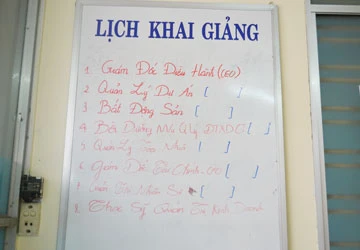 LỊCH KHAI GIẢNG
1. Giám Đốc Điều Hành (CEO)
2. Quản Lý Dự Án [ ]
3. Bất Động Sản [ ]
4. Bồi Dưỡng [ ]
5. Quản Lý Tòa Nhà [ ]
6. Giám Đốc Tài Chính [ ]
7. Nhân Sự [ ]
8. Thạc Sỹ Quản Trị Kinh Doanh